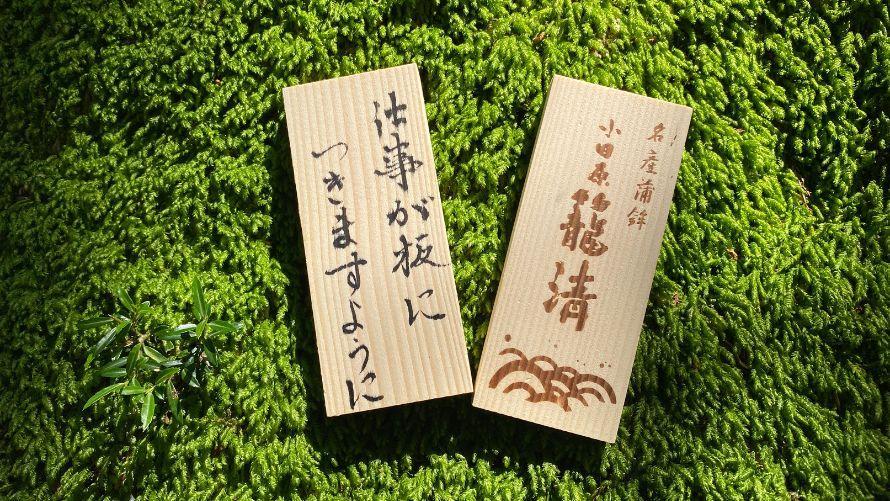 仕事が板に
つきますように
名産蒲鉾
小田原
龍清